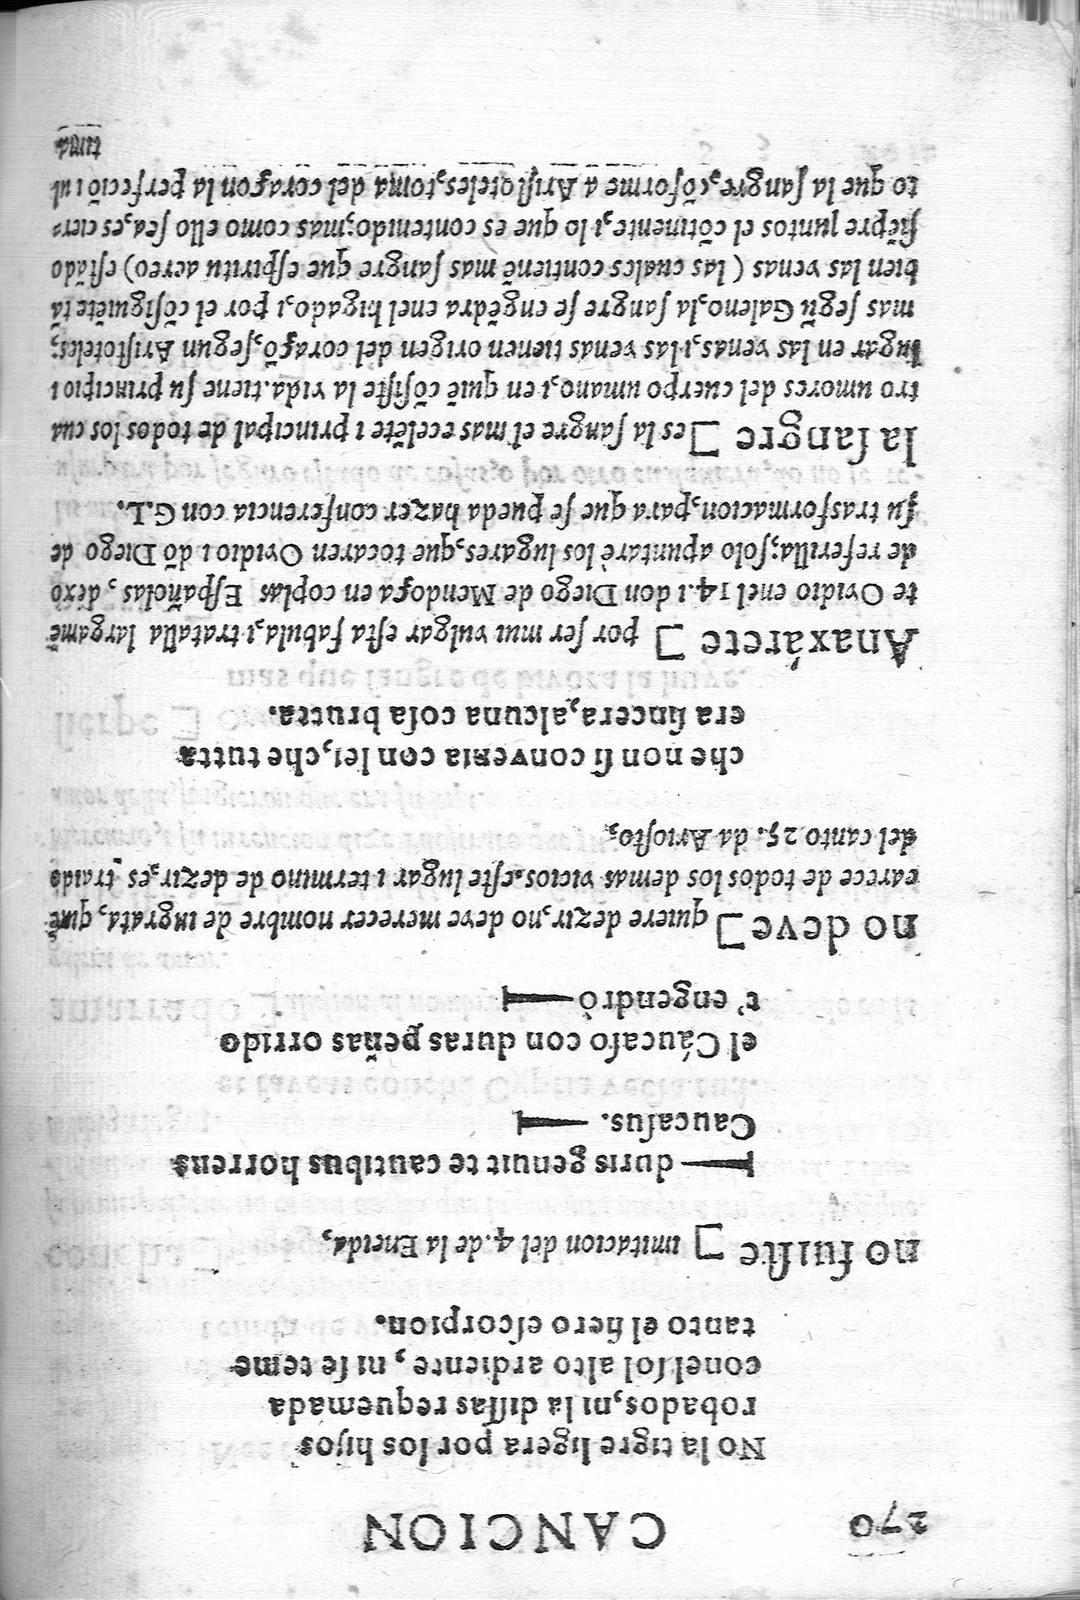 270 CANCION
No la tigre ligera por los hijos
robados, ni la dissas requemada
con el sol alto ardiente, ni se teme
tanto el fiero escorpion.
no fuiste ] imitacion del 4. de la Eneida,
duris genuit te cautibus horrens
Caucasus.
el Cáucaso con duras peñas orrido
t'engendrò
no deve ] quiere dezir, no deve merecer nombre de ingrata, quiē
carece de todos los demas vicios. este lugar i termino de dezir, es traido
del canto 25. da Ariosto,
che non si convenia con lei, che tutta
era sincera, alcuna cosa brutta.
Anaxárete ] por ser mui vulgar esta fabula, i tratalla largamē
te Ovidio en el 14. i don Diego de Mendoça en coplas Españolas, dexo
de referilla; solo apuntarè los lugares, que tocaren Ovidio i dō Diego de
su trasformacion, para que se pueda hazer conferencia con G. L.
la sangre ] es la sangre el mas ecelēte i principal de todos los cua
tro umores del cuerpo umano, i en quiē cōsiste la vida. tiene su principio i
lugar en las venas, i las venas tienen origen del coraçō, segun Aristoteles;
mas segū Galeno, la sangre se engēdra en el higado, i por el cōsiguiēte tā
bien las venas (las cuales contienē mas sangre que espiritu aereo) estādo
siēpre juntos el cōtinente, i lo que es contenido; mas como ello sea, es cier=
to que la sangre, cōforme a Aristoteles, toma del coraçon la perfeciō ul
tima